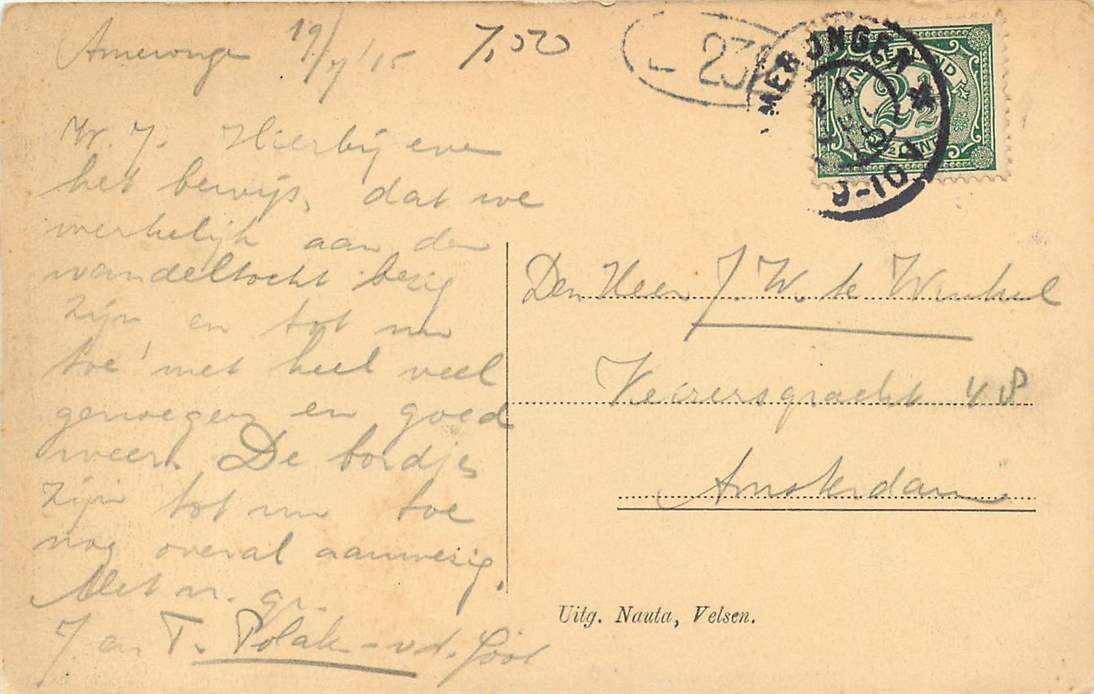 Amerongen 19/7 '15
7,50
L 23
AMERONGEN
9-10V
2½
W. J. Hierbij even
het bewijs, dat we
werkelijk aan den
wandeltocht bezig
zijn en tot nu
toe met heel veel
genoegen en goed
weer. De bordjes
zijn tot nu toe
nog overal aanwezig.
Met vr. gr.
J en T. Polak - v.d.
Den Heer J. W. te Winkel
Keizersgracht 48
Amsterdam
Uitg. Nauta, Velsen.